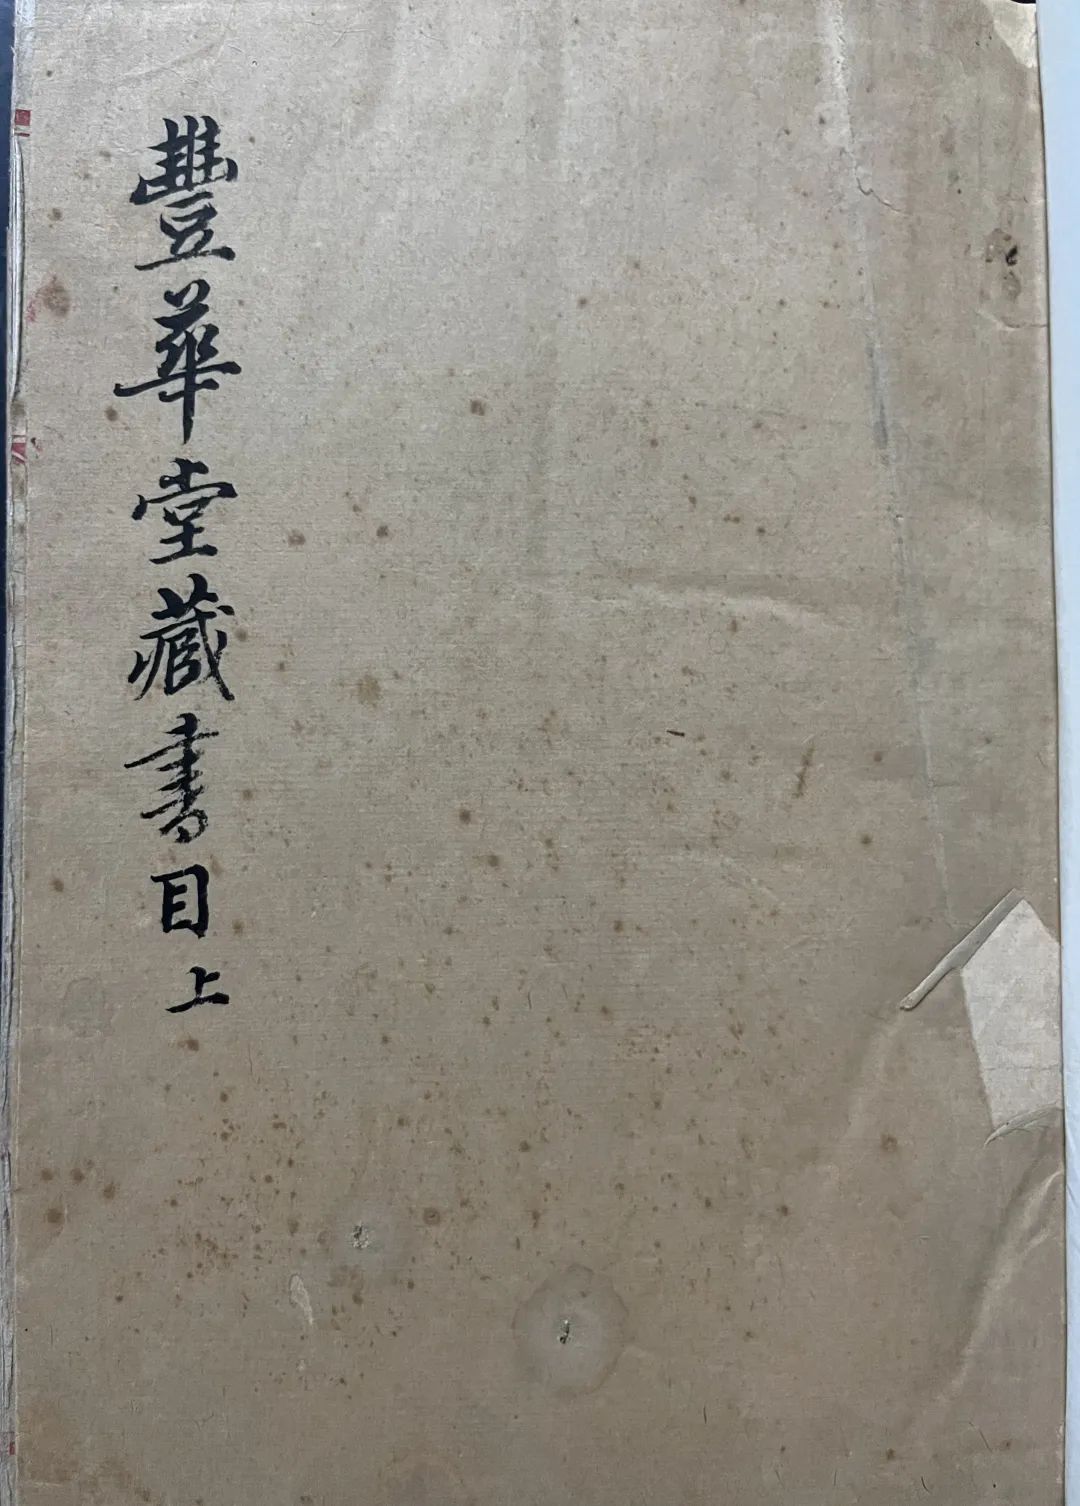 豐華堂藏書目上